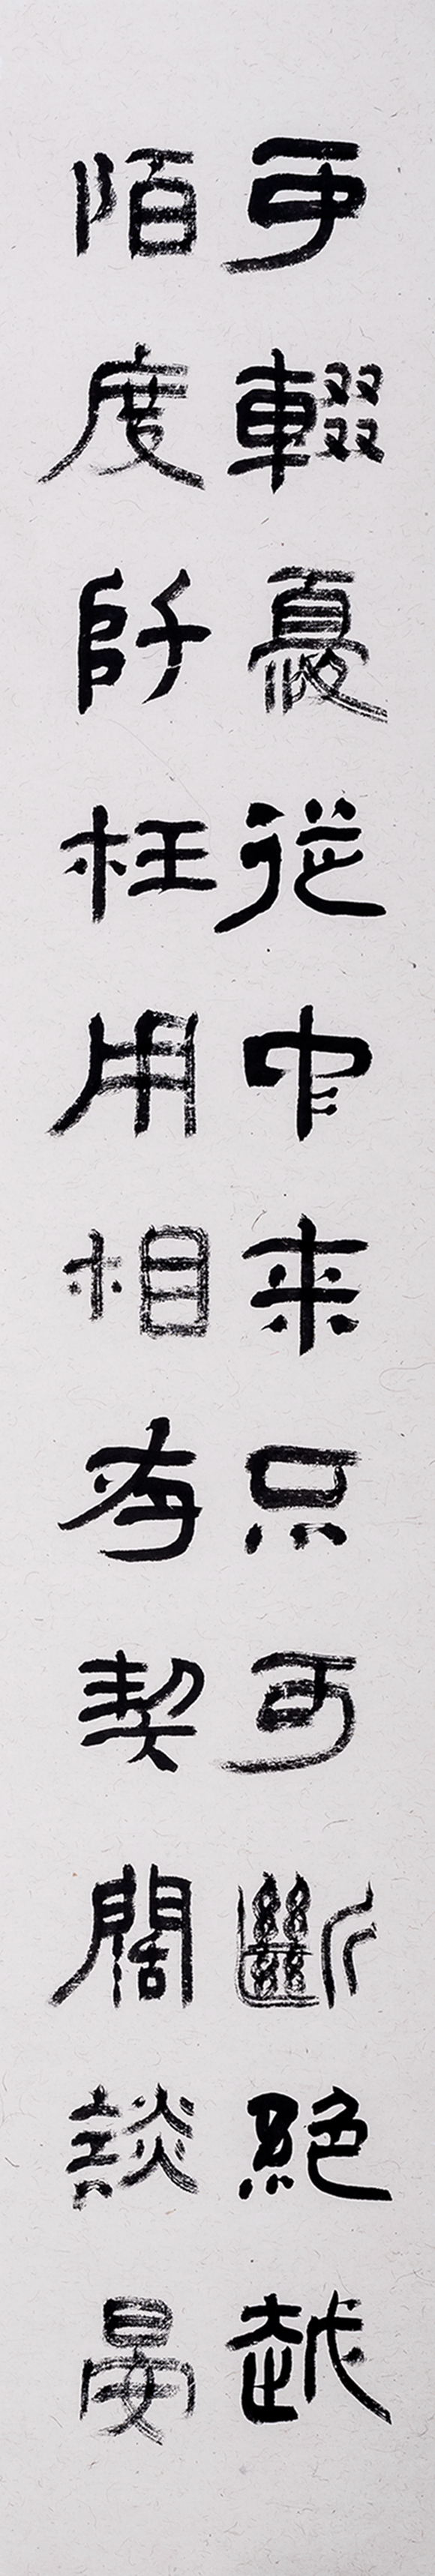 可輟憂從中來只可斷絕越
陌度阡枉用相存契闊談宴